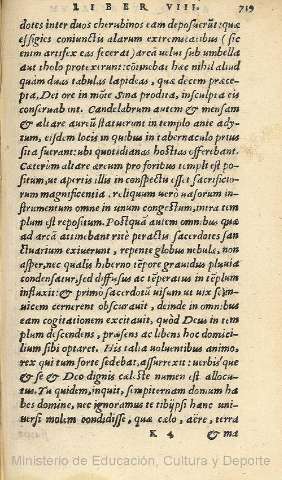 LIBER VIII. 719
dotes inter duos cherubinos eam deposuerũt: quæ
effigies coniunctis alarum extremitatibus (sic
enim artifex eas fecerat) arcã velut sub umbella
aut tholo protexerunt: cõtinebat hæc nihil aliud
quàm duas tabulas lapideas, quæ decem præce-
pta, Dei ore in mõte Sina prodita, insculpta eis
conseruabant. Candelabrum autem & mensam
& altare aureũ statuerunt in templo ante ady-
tum, eisdem locis in quibus in tabernaculo prius
sita fuerant: ubi quotidianas hostias efferebant.
Cæterùm altare æreum pro foribus templi est po-
situm, ut apertis illis in conspectu esset sacrificio-
rum magnificentia. reliquum verò vasorum in-
strumentum omne in unum congestum, intra tem
plum est repositum. Postquã autem omnibus quæ
ad arcã attinebant ritè peractis sacerdotes san-
ctuarium exiuerunt, repente globus nebulæ, non
asper, nec qualis hiberno tẽpore grauidus pluuia
condensatur, sed diffusus ac tẽperatus in tẽplum
influxit: & primò sacerdotũ visum ut vix se in-
uicem cernerent obscurauit, deinde in omnibus
eam cogitationem excitauit, quòd Deus in tem
plum descendens, præsens ac libens hoc domici-
lium sibi optaret. His talia voluentibus animo,
rex qui tum forte sedebat, assurrexit: verbisque
& se & Deo dignis cæleste numen est allocu-
tus. Tu quidem, inquit, sempiternam domum ha
bes domine, nec ignoramus te tibijpsi hanc uni-
uersi molem condidisse, quæ cælo, aëre, terra
K 4 & ma
Ministerio de Educación, Cultura y Deporte